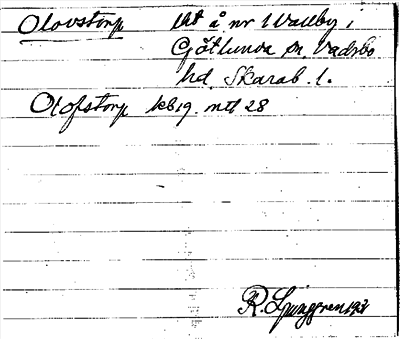 Olovstorp lht å nr Wallby i
Götlunda sn. Vadsbo
hd. Skarab. l.
Olofstorp kb19. mtl 28
R. Ljunggren